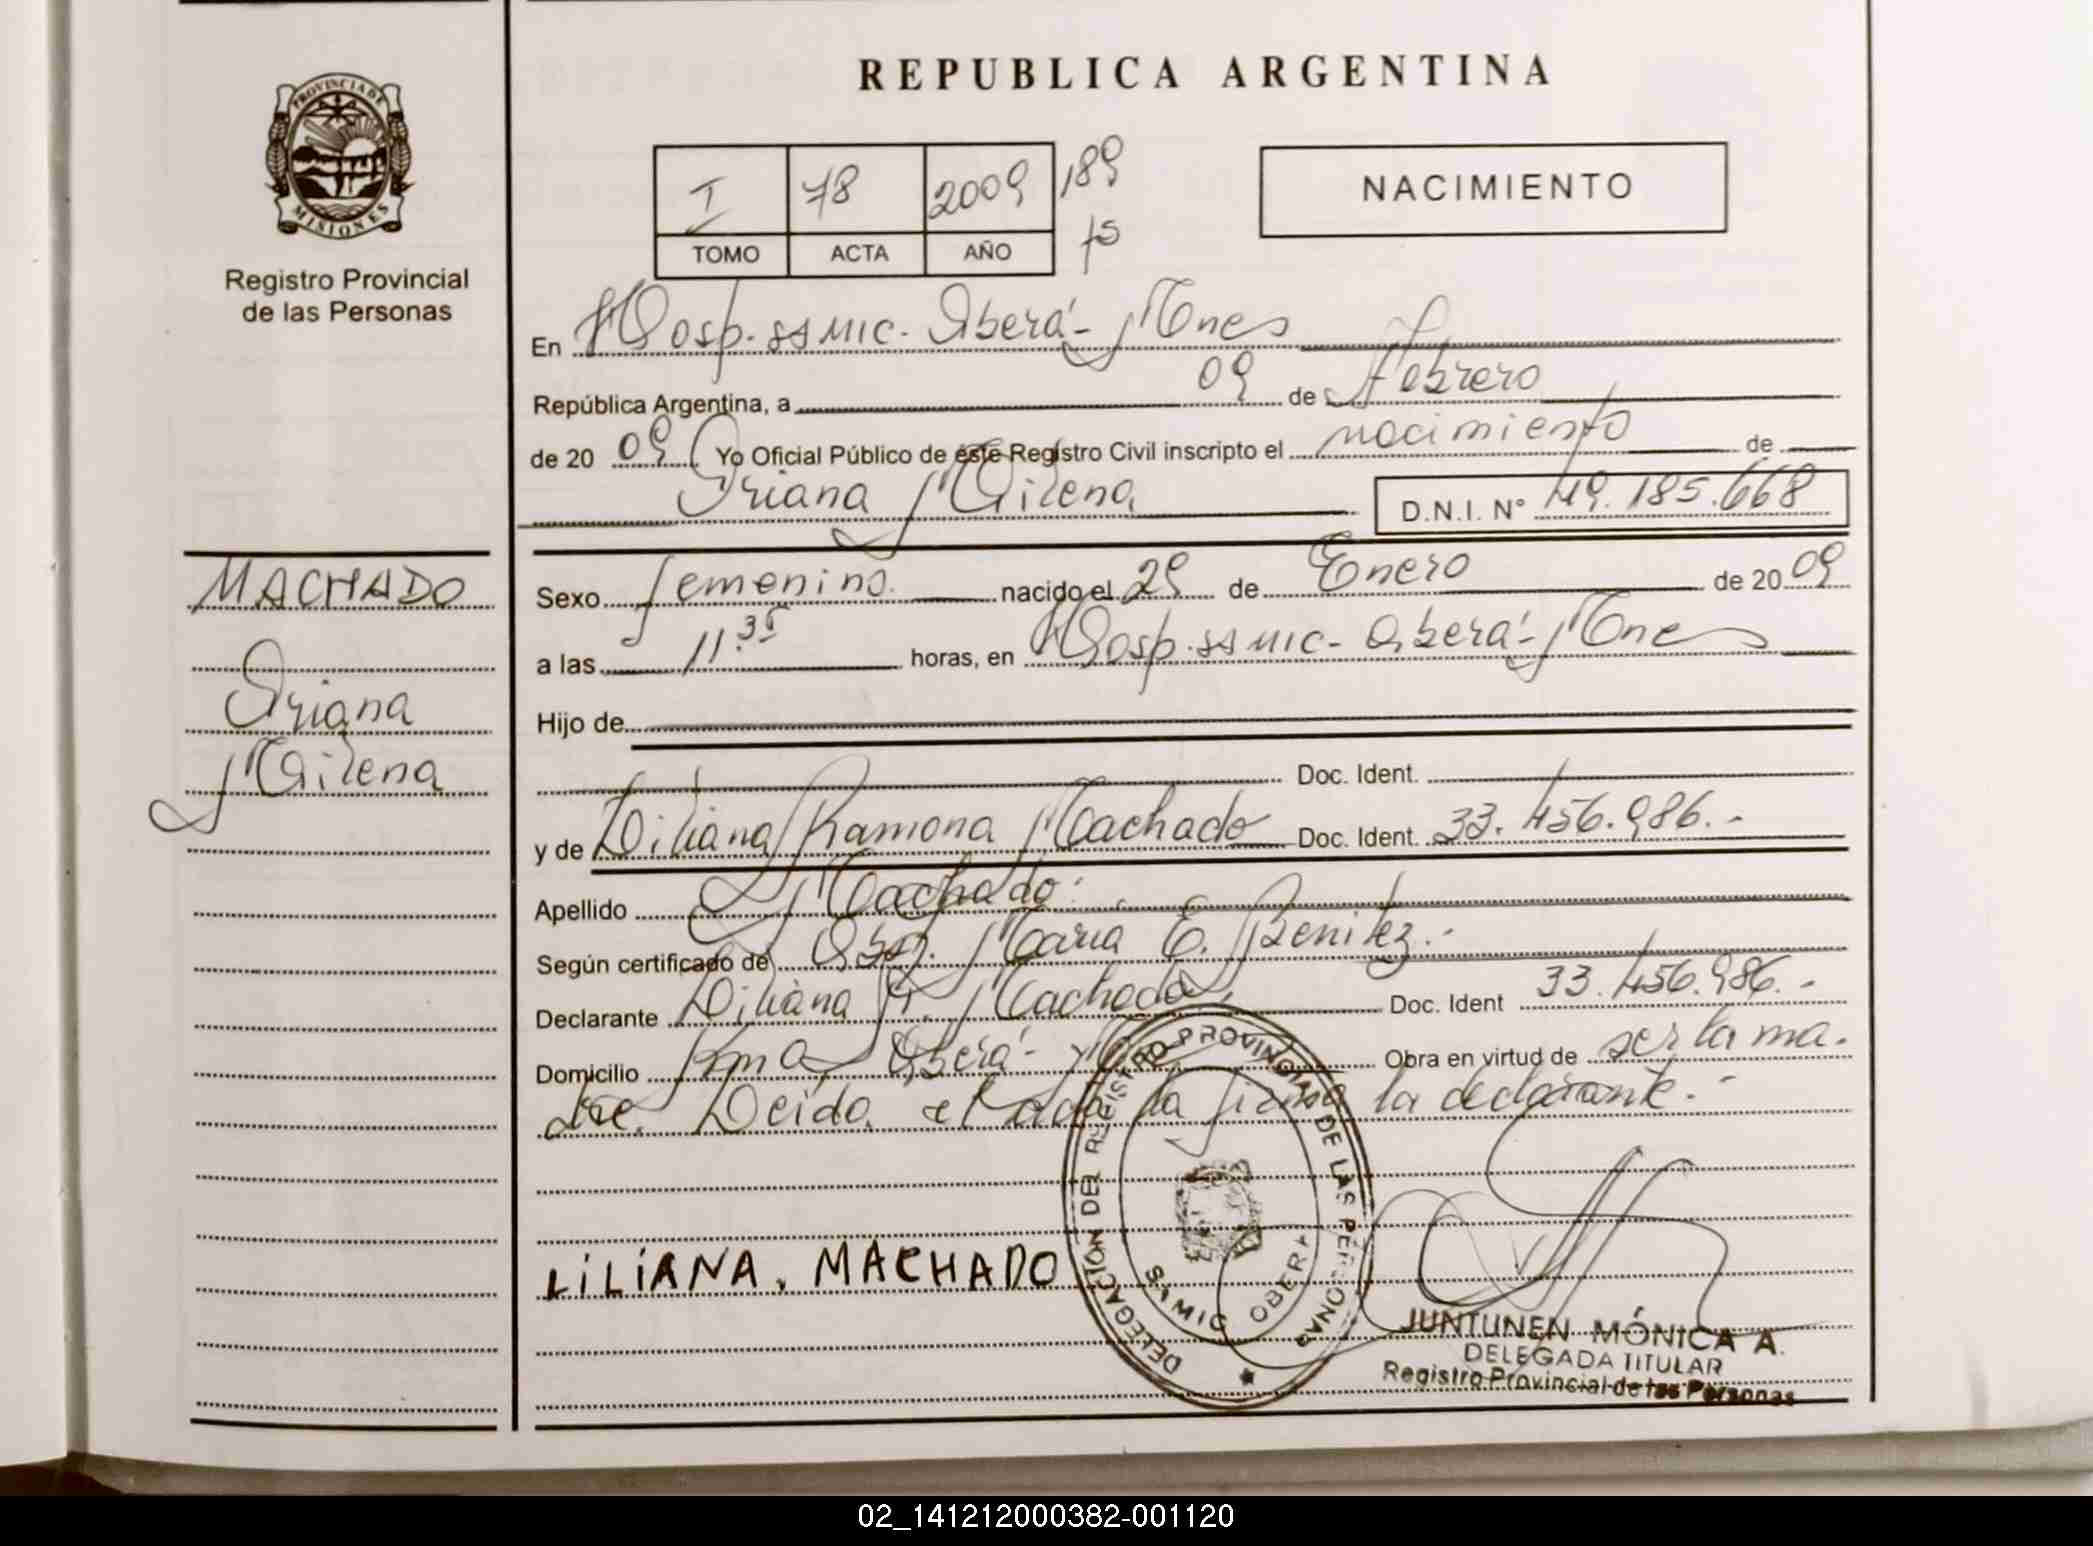 PROVINCIA DE
MISIONES
Registro Provincial
de las Personas
REPUBLICA ARGENTINA
I 78 2009 189
TOMO ACTA AÑO
NACIMIENTO
En Hosp. SAMIC. Oberá - Mnes
República Argentina, a 09 de Febrero
de 20 09 Yo Oficial Público de éste Registro Civil inscripto el nacimiento de
Oriana Milena D.N.I. Nº 49.185.668
MACHADO
Oriana
Milena
Sexo femenino. nacido el 29 de Enero de 20 09
a las 11.35 horas, en Hosp. SAMIC - Oberá - Mnes
Hijo de
Doc. Ident.
y de Liliana Ramona Machado Doc. Ident. 33.456.986.-
Apellido Machado.
Según certificado de Obst. Maria E. Benitez.-
Declarante Liliana R. Machado Doc. Ident 33.456.986.-
Domicilio Oberá - Obra en virtud de ser la ma.
dre. Leida el acta la firma la declarante.-
LILIANA. MACHADO
DELEGACIÓN DEL REGISTRO PROVINCIAL DE LAS PERSONAS
SAMIC OBERA
JUNTUNEN MÓNICA A.
DELEGADA TITULAR
Registro Provincial de las Personas
02_141212000382-001120